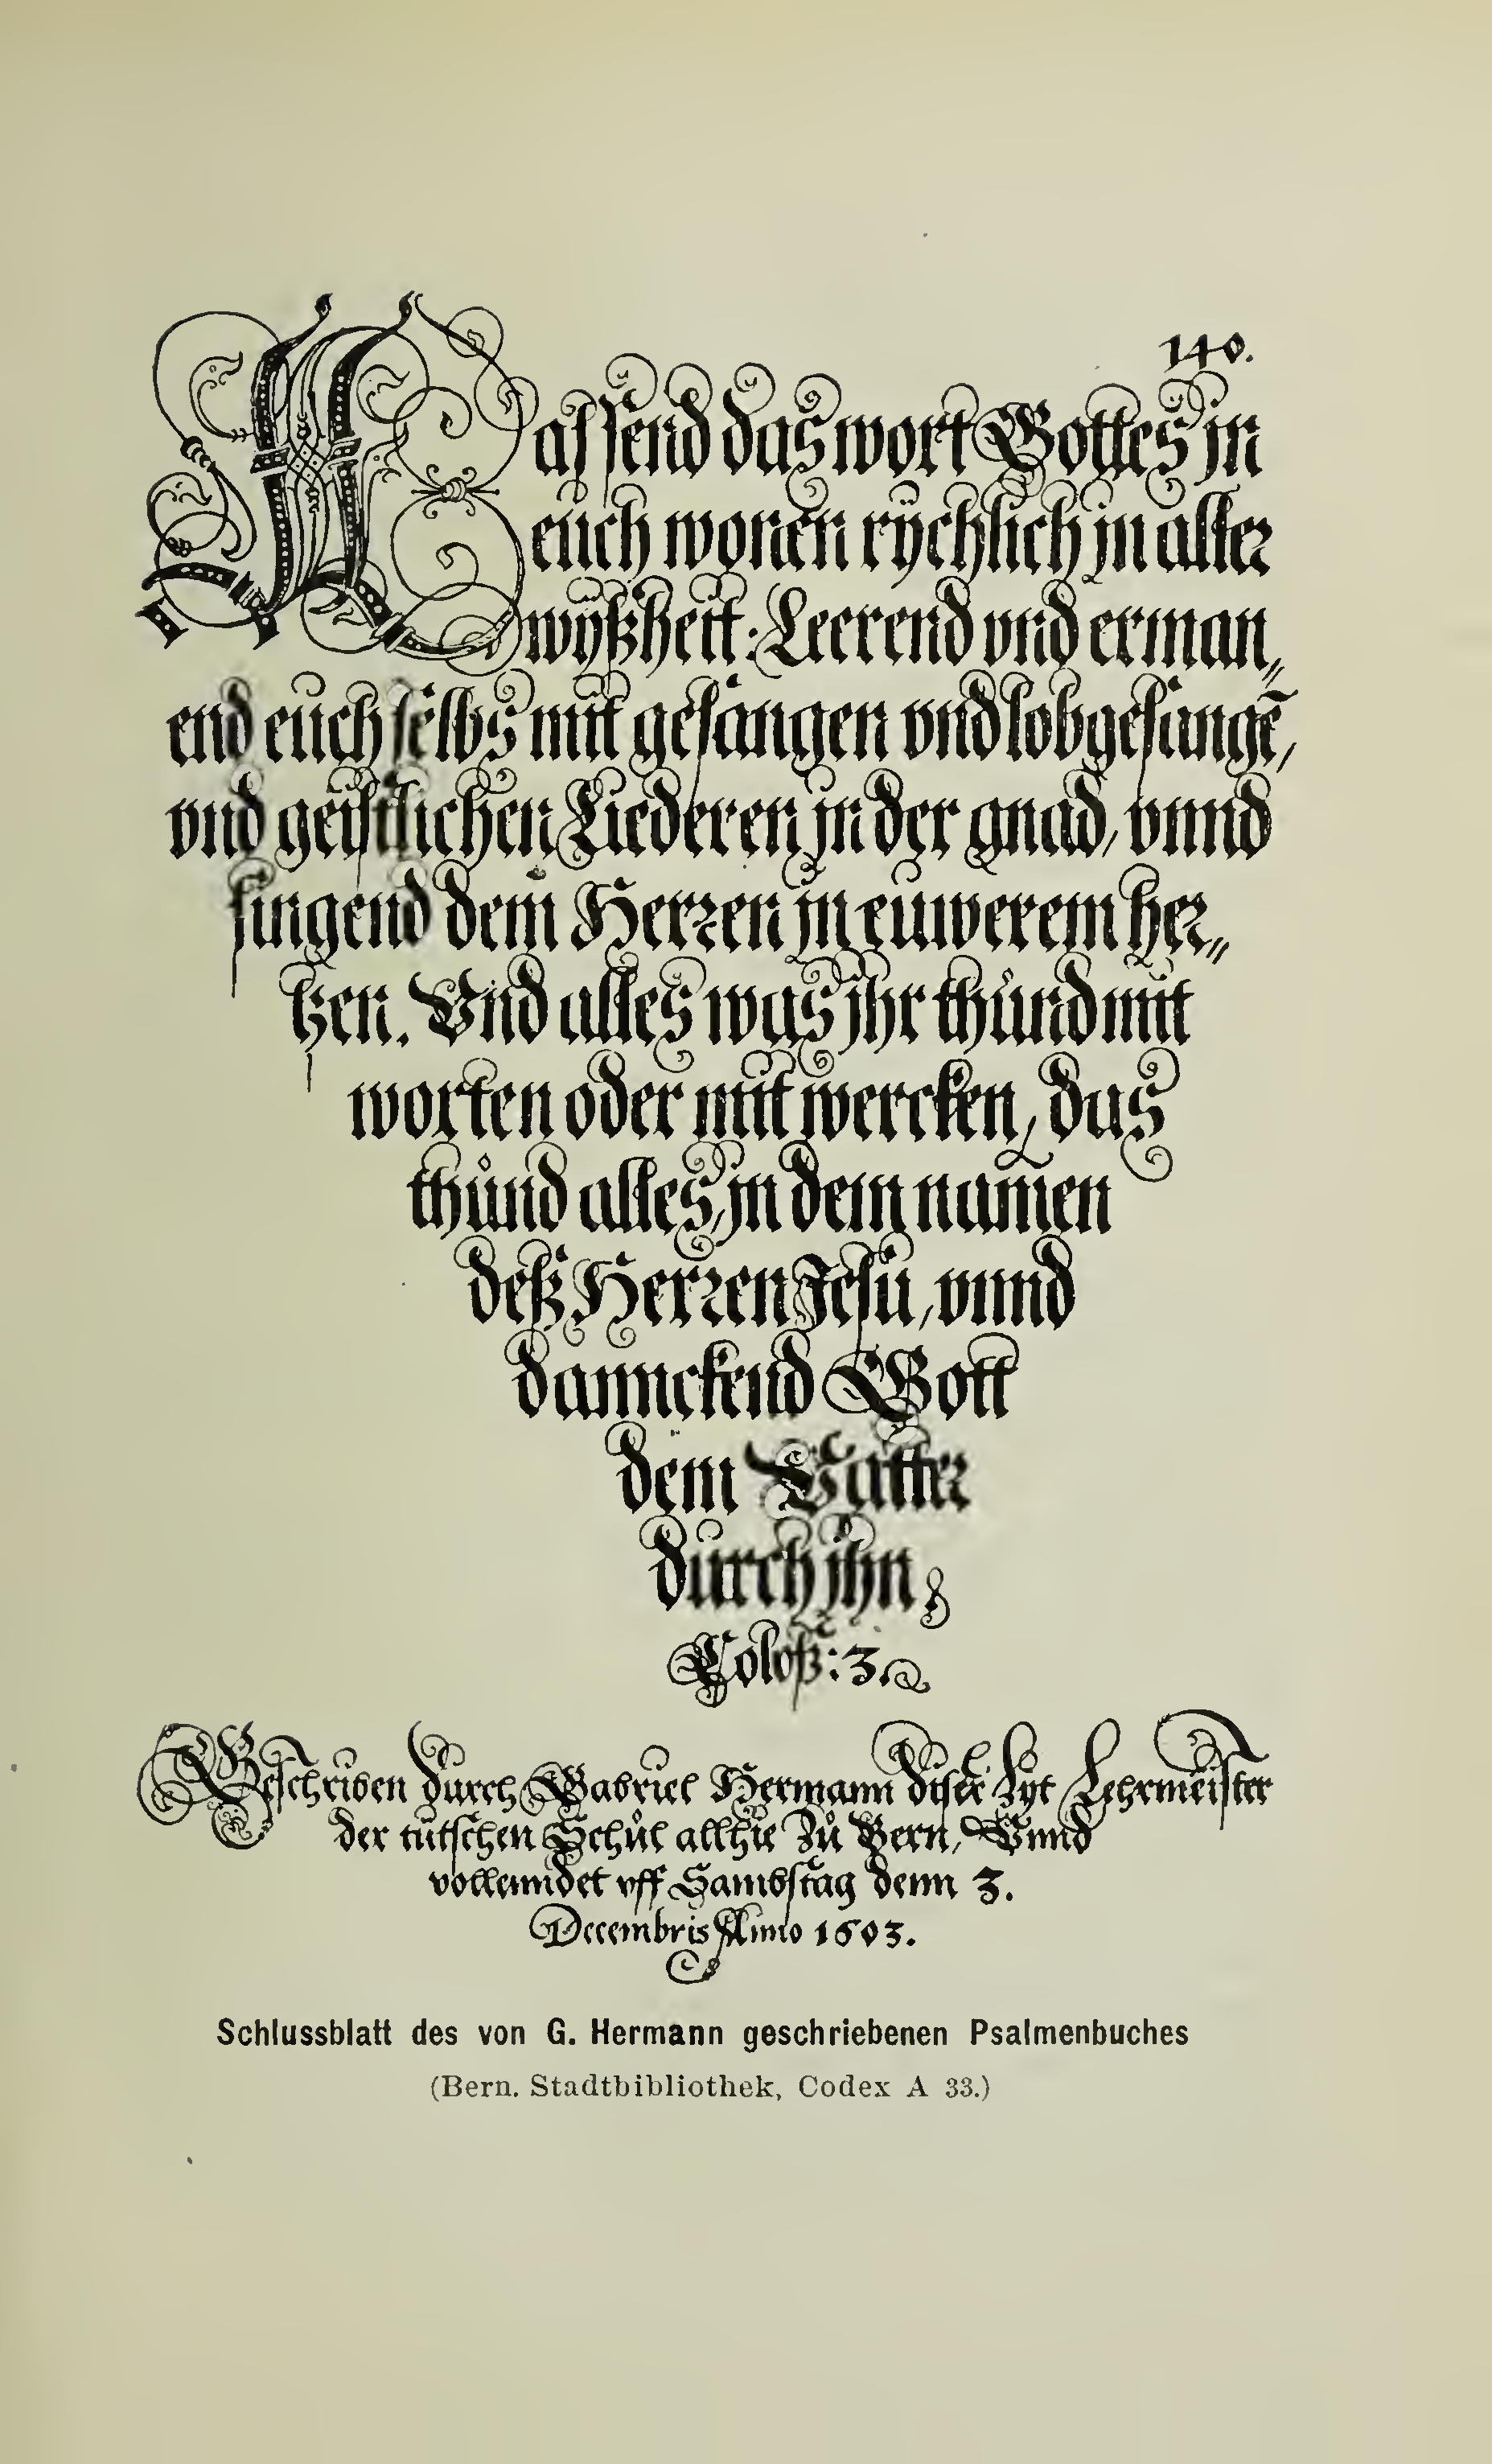 140.
Lassend das wort Gottes in
euch wonen rÿchlich in aller
wÿßheit: Leerend vnd erman„
end euch selbs mit gesangen vnd lobgesangē,
vnd geistlichen Liederen in der gnad, vnnd
singend dem Herren in euwerem her„
tzen. Vnd alles was jhr thůnd mit
worten oder mit wercken, das
thůnd alles, in dem namen
deß Herren Jesu, vnnd
danckend Gott
dem Vatter
durch ihn
Coloß: 3.
Geschriben durch Gabriel Hermann diser Zyt Lehrmeister
der tütschen Schůl allhie Zů Bern, Vnnd
vollenndet vff Sambstag denn 3.
Decembris Anno 1603.
Schlussblatt des von G. Hermann geschriebenen Psalmenbuches
(Bern. Stadtbibliothek, Codex A 33.)